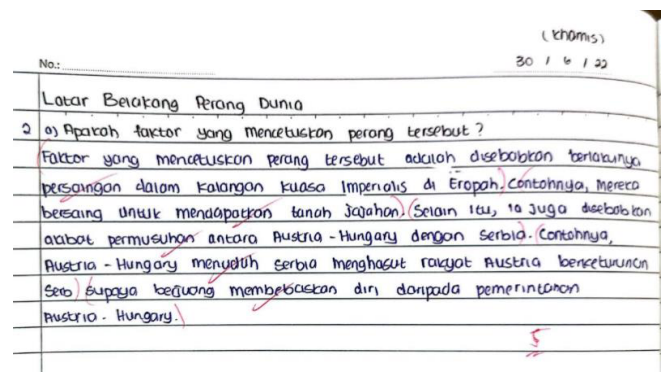 (Khamis)
No.: 30 / 6 / 22
Latar Belakang Perang Dunia
2 a) Apakah faktor yang mencetuskan perang tersebut?
Faktor yang mencetuskan perang tersebut adalah disebabkan berlakunya
persaingan dalam kalangan kuasa Imperialis di Eropah. Contohnya, mereka
bersaing untuk mendapatkan tanah jajahan. Selain itu, ia juga disebabkan
akibat permusuhan antara Austria - Hungary dengan Serbia. Contohnya,
Austria - Hungary menuduh Serbia menghasut rakyat Austria berketurunan
Serb supaya berjuang membebaskan diri daripada pemerintahan
Austria - Hungary.
5